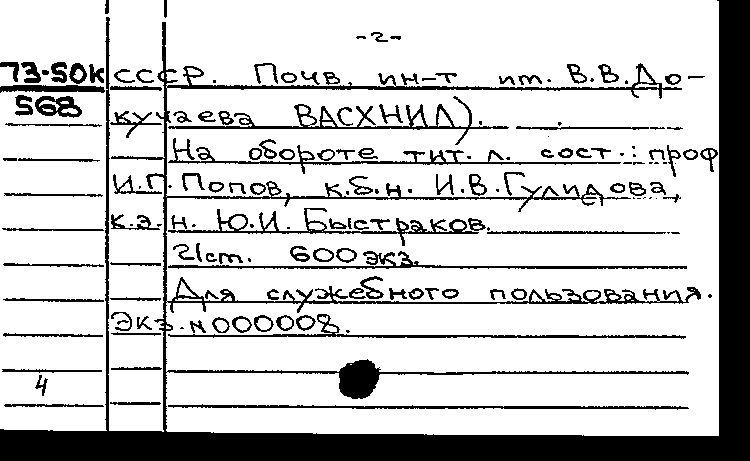 -2-
73-50К СССР. Почв. ин-т им. В.В.До-
568 кучаева ВАСХНИЛ).
На обороте тит. л. сост.: проф
И.Г. Попов, к.б.н. И.В.Гулидова,
к.э.н. Ю.И. Быстраков.
21ст. 600 экз.
Для служебного пользования.
Экз.N000008.
4